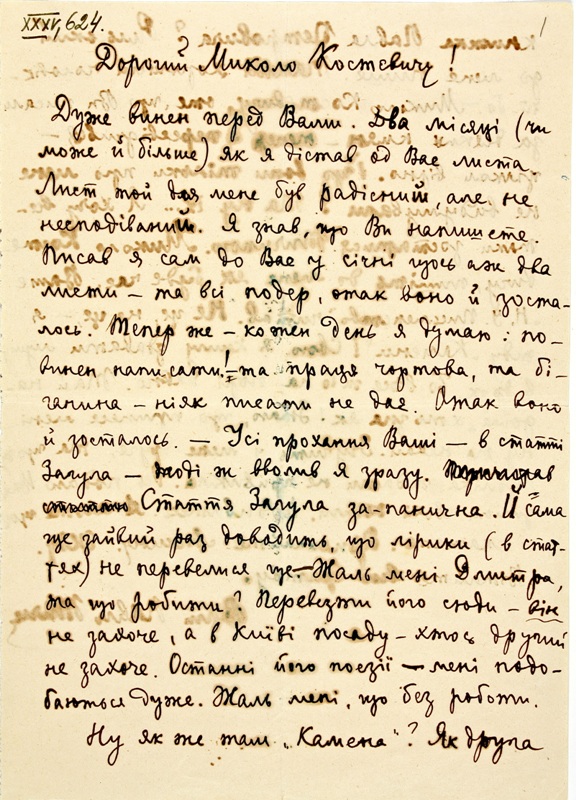 XXXV, 624. 1
Дорогий Миколо Костевичу!
Дуже винен перед Вами. Два місяці (чи
може й більше) як я дістав од Вас листа.
Лист той для мене був радісний, але не
несподіваний. Я знав, що Ви напишете.
Писав я сам до Вас у січні щось аж два
листи – та всі подер, отак воно й зоста-
лось. Тепер же – кожен день я думаю: по-
винен написати! – та праця чортова, та бі-
ганина – ніяк писати не дає. Отак воно
й зосталось. – Усі прохання Ваші – в статті
Загула – тоді ж вволив я зразу.
статтю Стаття Загула за-панична. Й сама
ще зайвий раз доводить, що лірики (в стат-
тях) не перевелися ще. Жаль мені Дмитра,
та що робити? Перевезти його сюди – він
не захоче, а в Київі посаду – хтось другий
не захоче. Останні його поезії – мені подо-
баються дуже. Жаль мені, що без роботи.
Ну як же там „Камена"? Як друга